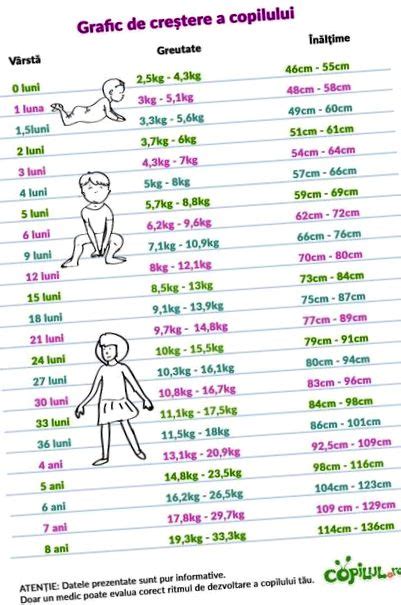 Grafic de creștere a copilului
Vârstă Greutate Înălțime
0 luni 2,5kg - 4,3kg 46cm - 55cm
1 luna 3kg - 5,1kg 48cm - 58cm
1,5luni 3,3kg - 5,6kg 49cm - 60cm
2 luni 3,7kg - 6kg 51cm - 61cm
3 luni 4,3kg - 7kg 54cm - 64cm
4 luni 5kg - 8kg 57cm - 66cm
5 luni 5,7kg - 8,8kg 59cm - 69cm
6 luni 6,2kg - 9,6kg 62cm - 72cm
9 luni 7,1kg - 10,9kg 66cm - 76cm
12 luni 8kg - 12,1kg 70cm - 80cm
15 luni 8,5kg - 13kg 73cm - 84cm
18 luni 9,1kg - 13,9kg 75cm - 87cm
21 luni 9,7kg - 14,8kg 77cm - 89cm
24 luni 10kg - 15,5kg 79cm - 91cm
27 luni 10,3kg - 16,1kg 80cm - 94cm
30 luni 10,8kg - 16,7kg 83cm - 96cm
33 luni 11,1kg - 17,5kg 84cm - 98cm
36 luni 11,5kg - 18kg 86cm - 101cm
4 ani 13,1kg - 20,9kg 92,5cm - 109cm
5 ani 14,8kg - 23,5kg 98cm - 116cm
6 ani 16,2kg - 26,5kg 104cm - 123cm
7 ani 17,8kg - 29,7kg 109 cm - 129cm
8 ani 19,3kg - 33,3kg 114cm - 136cm
ATENȚIE: Datele prezentate sunt pur informative.
Doar un medic poate evalua corect ritmul de dezvoltare a copilului tău.
COPILUL.ro